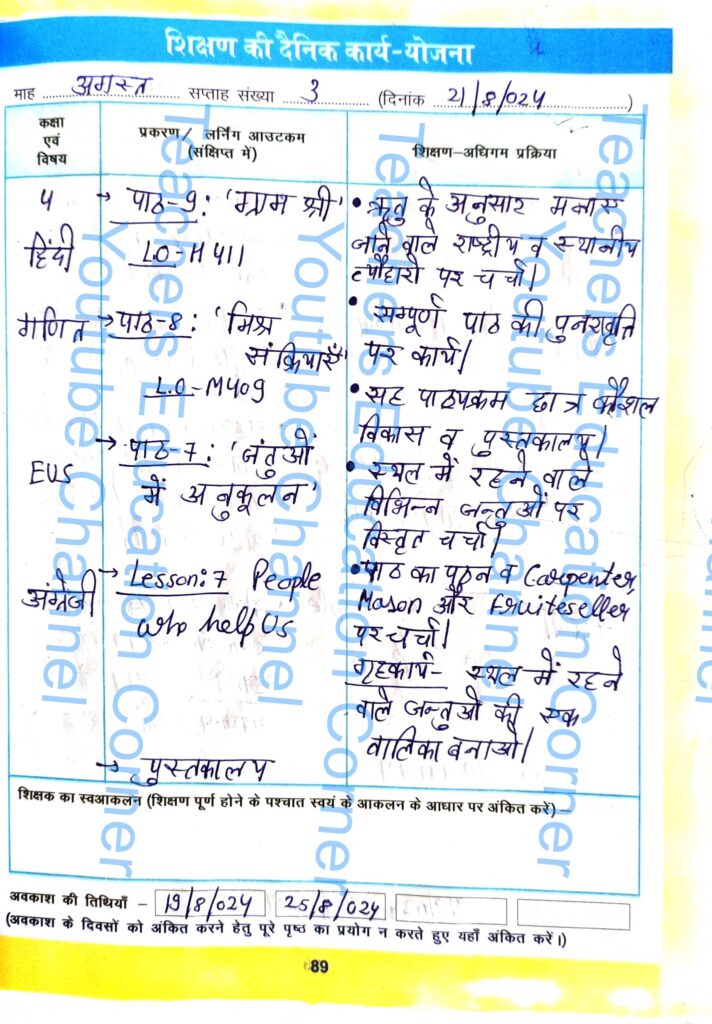 शिक्षण की दैनिक कार्य-योजना
माह अगस्त सप्ताह संख्या 3 (दिनांक 21/8/024)
कक्षा
एवं
विषय
प्रकरण/ लर्निंग आउटकम
(संक्षिप्त में)
शिक्षण-अधिगम प्रक्रिया
4
हिंदी
→ पाठ-9: 'ग्राम श्री'
LO-H411
• ऋतु के अनुसार मनाए
जाने वाले राष्ट्रीय व स्थानीय
त्यौहारों पर चर्चा।
गणित
→ पाठ-8: 'मिश्र
संक्रियाएँ'
LO-M409
• सम्पूर्ण पाठ की पुनरावृत्ति
पर कार्य।
• सह पाठयक्रम छात्र कौशल
विकास व पुस्तकालय।
EVS
→ पाठ-7: 'जंतुओं
में अनुकूलन'
• स्थल में रहने वाले
विभिन्न जन्तुओं पर
विस्तृत चर्चा।
अंग्रेजी
→ Lesson:7 People
who help Us
• पाठ का पठन व Carpenter,
Mason और fruiteseller
पर चर्चा।
गृहकार्य- स्थल में रहने
वाले जन्तुओं की एक
तालिका बनाओ।
→ पुस्तकालय
शिक्षक का स्वआकलन (शिक्षण पूर्ण होने के पश्चात स्वयं के आकलन के आधार पर अंकित करें) –
अवकाश की तिथियाँ – 19/8/024 25/8/024
(अवकाश के दिवसों को अंकित करने हेतु पूरे पृष्ठ का प्रयोग न करते हुए यहाँ अंकित करें।)
89
Teachers Education Corner
Youtube Channel
Teachers Education Corner
Youtube Channel
Teachers Education Corner